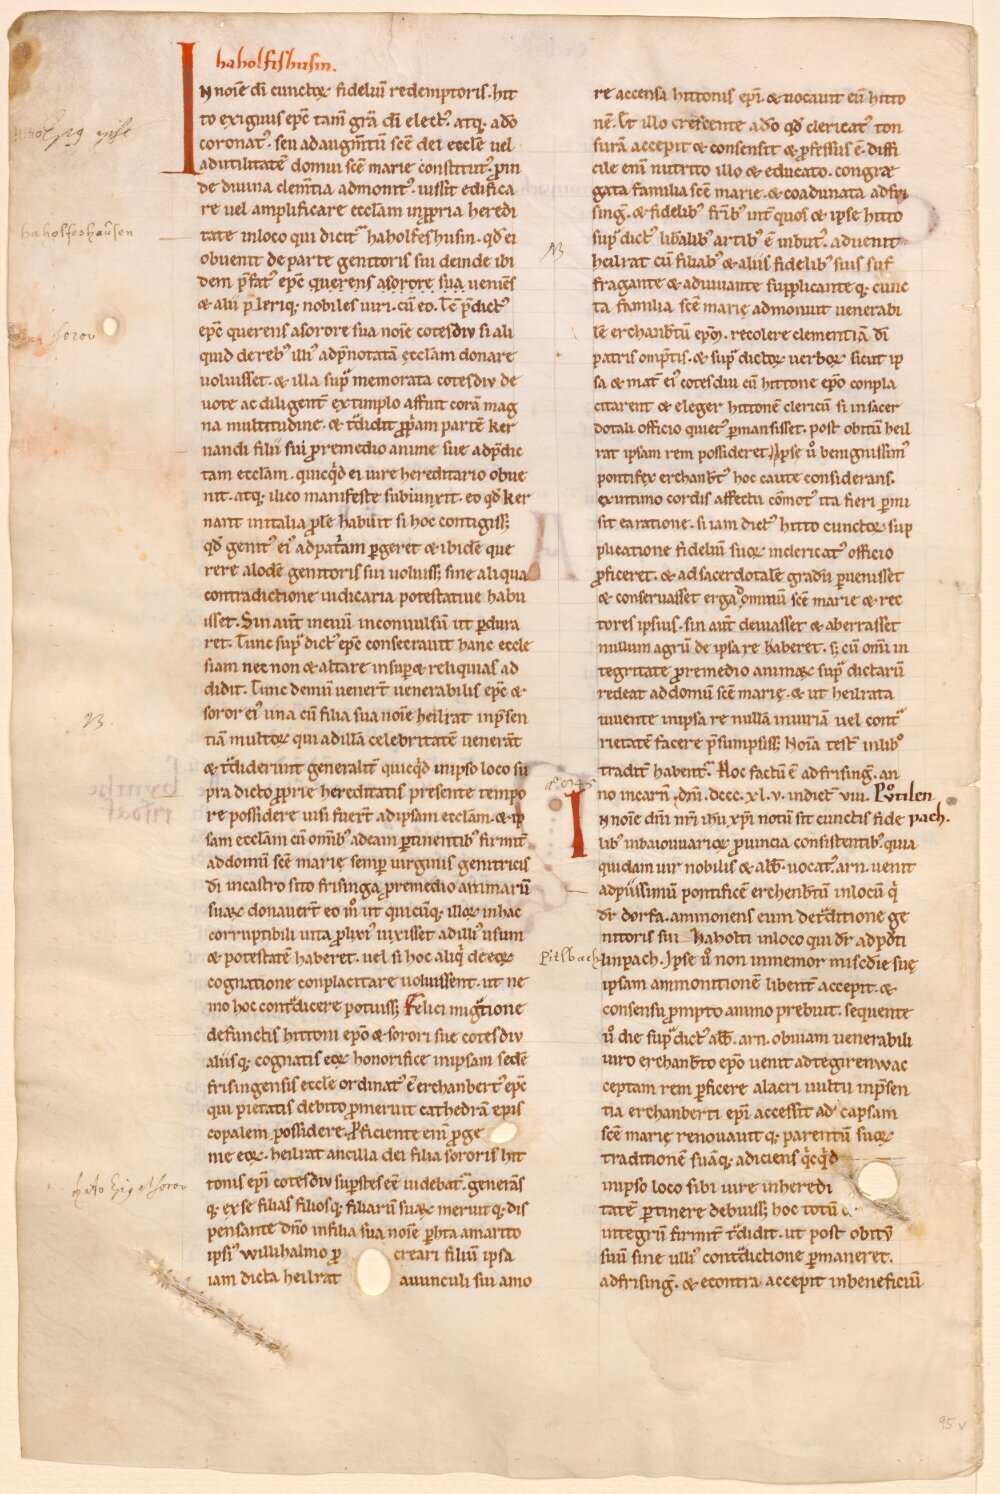 haholfishusin.
IN noie dī cunctoꝝ fideliū redemptoris. hit
to exiguus epc̄ tam̄ gr̄a dī elect᷒. atq; ado
coronat᷒. seu adaugm̄tū scē dei ecclē vel
adutilitatē domui scē marie constitut᷒. ꝓin
de diuina clem̄tia admonit᷒. iussit edifica
re uel amplificare eccl̄am inꝓpria heredi
tate inloco qui dicit᷒ haholfeshusin. qđ ei
obuenit de parte genitoris sui deinde ibi
dem p̄fat᷒ epc̄ querens asorore sua ueniēs
& alii pleriq; nobiles uiri. cū eo. Tc̄ p̄dict᷒
epc̄ querens asorore sua noīe cotesdiu si ali
quid dereb᷒ illi᷒ adp̄notatā ecclam donare
uoluisset. & illa sup̄ memorata cotesdiu de
uote ac diligent̄ extimplo affuit corā mag
na multitudine. & t̄didit ꝓp̄am partē ker
nandi filii sui ꝓremedio anime sue adp̄dic
tam eccl̄am. quicq̄d ei iure hereditario obue
nit. atq; ilico manifeste subiunxit. eo qđ ker
nant initalia ꝓlē habuit si hoc contigiss;
qđ genit᷒ ei᷒ adpat̄am ꝑgeret & ibidē que
rere alodē genitoris sui uoluiss; sine aliqua
contradictione iudicaria potestatiue habu
isset. Sin aut̄ ineuū inconuulsū ut ꝑdura
ret. Tunc sup̄ dict᷒ epc̄ consecrauit hanc eccle
siam nec non & altare insup̄ & reliquias ad
didit. Tunc demū uener̄t uenerabilis epc̄ &
soror ei᷒ una cū filia sua noīe heilrat inp̄sen
tiā multoꝝ qui adillā celebritatē uenerāt
& t̄diderunt generalit̄ quicq̄d inipso loco su
pra dicto ꝓprie hereditatis presente tempo
re possidere uisi fuer̄t adipsam eccl̄am. & ip
sam eccl̄am cū omīb᷒ adeam ꝑtinentib᷒ firmit̄
addomū scē marię semꝑ uirginis genitricis
dī incastro sito frisinga ꝓremedio animarū
suaꝝ donauer̄t eo m̄ ut quicūq; illoꝝ inhac
corruptibili uita ꝓlixi᷒ uixisset adilli᷒ usum
& potestatē haberet. uel si hoc aliq̄ deeoꝝ
cognatione conplacitare uoluissent. ut ne
mo hoc cont̄dicere potuiss; Felici miḡtione
defunctis hittoni epō & sorori sue cotesdiu
aliisq; cognatis eoꝝ honorifice inipsam sedē
frisingensis ecclē ordinat᷒ ē erchanbert᷒ epc̄
qui pietatis debito ꝓmeruit cathedrā epis
copalem possidere. Ꝓficiente enī ꝓge
nie eoꝝ. heilrat ancilla dei filia sororis hit
tonis epī cotesdiu sup̄stes eē uidebat᷒. generās
q; ex se filias filiosq; filiarū suaꝝ meruit q; dis
pensante dn̄o infilia sua noīe ꝑhta amarito
ipsi᷒ willihalmo ꝓcreari filiū ipsa
iam dicta heilrat auunculi sui amo
re accensa hittonis epī. & uocauit eū hitto
nē. Et illo crescente ado qđ clericat᷒ ton
surā accepit & consensit & ꝓfessus ē. diffi
cile enī nutrito illo & educato. congre
gata familia scē marie. & coadunata adfri
sing̅. & fidelib᷒ fr̄ib᷒ int̄ quos & ipse hitto
sup̄ dict᷒ lib̄alib᷒ artib᷒ ē inbut᷒. aduenit
heilrat cū filiab᷒ & aliis fidelib᷒ suis suf
fragante & adiuuante supplicante q; cunc
ta familia scē marię admonuit uenerabi
lē erchanb̄tū epōm. recolere clementiā dī
patris omp̄tis. & sup̄ dictoꝝ uerboꝝ sicut ip
sa & mat̄ ei᷒ cotesdiu cū hittone epō conpla
citarent & eleger hittonē clericū si insacer
dotali officio quiet᷒ ꝑmansisset. post obitū heil
rat ipsam rem possideret. Ipse ū benignissim᷒
pontifex erchanb̄t᷒ hoc caute considerans.
exintimo cordis affectu cōmot᷒ ita fieri ꝑmi
sit earatione. si iam dict᷒ hitto cunctoꝝ sup
plicatione fideliū suoꝝ inclericat᷒ officio
ꝓficeret. & adsacerdotalē gradū ꝑuenisset
& conseruasset erga domum scē marie & rec
tores ipsius. sin aut̄ deuiasset & aberrasset
nullum agrū de ipsa re haberet. s; cū omī in
tegritate ꝓremedio animaꝝ sup̄ dictarū
redeat addomū scē marię. & ut heilrata
uiuente inipsa re nullā iniuriā uel cont̄
rietatē facere p̄sumpsiss; Noīa test̄ inlib᷒
tradit̄ habent᷒. Hoc factū ē adfrising̅. an
no incarn̄. dn̄i. dccc. xl. v. indict̄ viii. Pv̊tilen
pach.
IN noie dn̄i nr̄i ihū xp̄i notū sit cunctis fide
lib᷒ inbaiouuarioꝝ ꝓuincia consistentib᷒. quia
quidam uir nobilis & abb̄. uocat᷒. arn. uenit
adpiissimū pontificē erchenb̄tū inlocū q̄
dr̄ dorfa. ammonens eum det̄ditione ge
nitoris sui Haholti inloco qui dr̄ adpōti
linpach. Ipse ū non inmemor miscdie suę
ipsam ammonitionē libent̄ accepit. &
consensu ꝓmpto animo prebuit. sequente
ū die sup̄ dict᷒ abb̄. arn. obuiam uenerabili
uiro erchanb̄to epō uenit adtegirenwac
ceptam rem ꝑficere alacri uultu inp̄sen
tia erchanberti epī accessit ad capsam
scē marię renouauit q; parentū suoꝝ
traditionē suāq; adiciens q̄cq̄d
inipso loco sibi iure inheredi
tatē ꝑtinere debuiss; hoc totū &
integrū firmit̄ t̄didit. ut post obitū
suū sine ulli᷒ cont̄dictione ꝑmaneret.
adfrising̅. & econtra accepit inbeneficiū
hahol&shausen
soror
NB
NB.
Pitlbach
Hitto Epi et soror
95 v